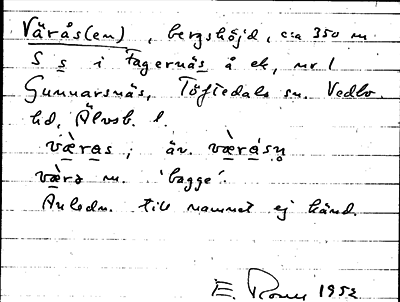 Värås(en), bergshöjd, c:a 350 m
S s i Fagernäs å ek, nr 1
Gunnarsnäs, Töftedals sn. Vedbo
hd, Älvsb. l.
væ̀ras; äv. væ̀råsn̥
væ̀rə m. 'bagge'.
Anledn. till namnet ej känd.
E. 1952